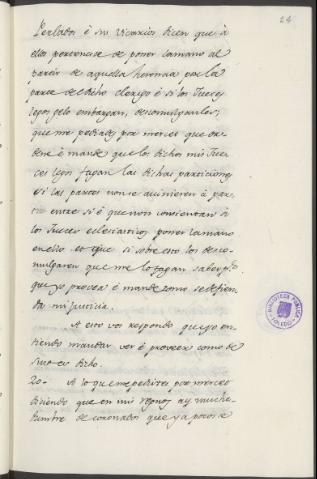 24
Perlados é sus vicarios dicen que á
ellos pertenesce de poner la mano al
partir de aquella herencia por la
parte del dicho clerigo é si los Jueces
legos gelo embargan, descomulganlos,
que me pediades por merced que or-
dene é mande que los dichos mis Jue-
ces legos fagan las dichas particiones
si las partes non se avinieren á par-
tir entre si é que non consientan á
los Jueces eclesiasticos poner la mano
en ello et que si sobre esto los desco-
mulgaren que me lo fagan saber pa
que yo provea é mande como se defien-
da mi Justicia.
A esto vos respondo que yo en-
tiendo mandar ver é proveer como de
suso es dicho.
20.. A lo que me pedistes por merced
diciendo que en mis regnos ay muche-
dumbre de coronados que ya pocos é
BIBLIOTECA PUBLICA
TOLEDO